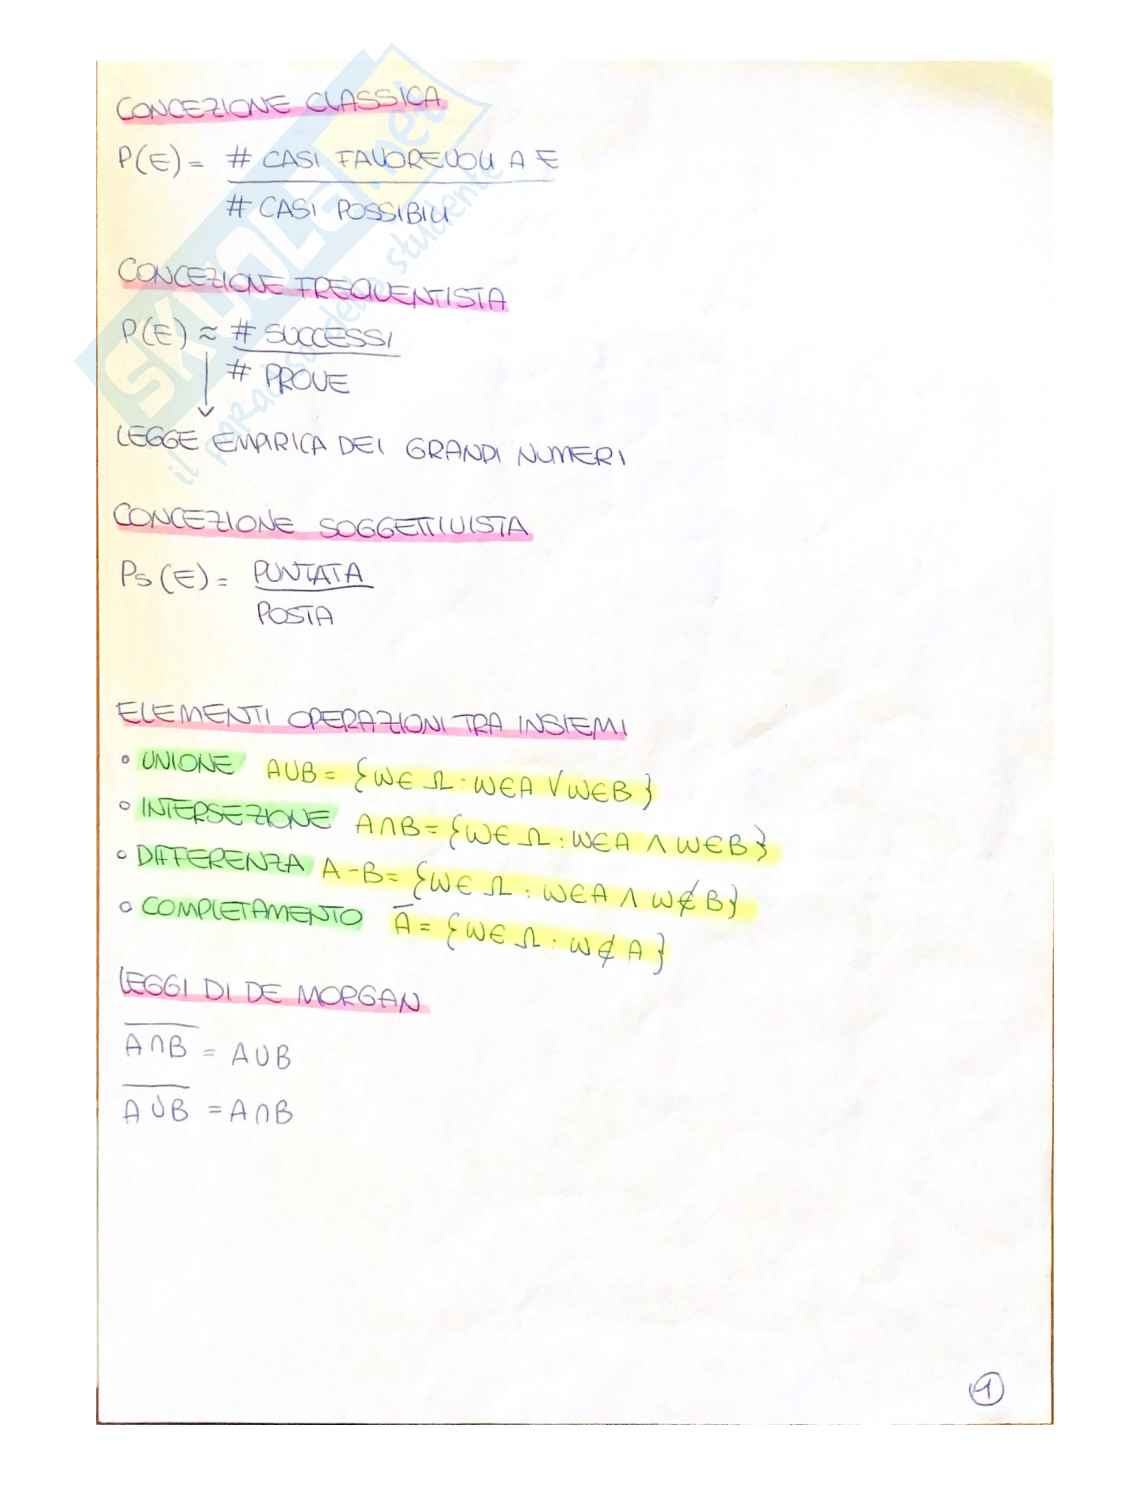 CONCEZIONE CLASSICA
P(E) = # CASI FAVOREVOLI A E
# CASI POSSIBILI
CONCEZIONE FREQUENTISTA
P(E) ≈ # SUCCESSI
# PROVE
LEGGE EMPIRICA DEI GRANDI NUMERI
CONCEZIONE SOGGETTIVISTA
Ps(E) = PUNTATA
POSTA
ELEMENTI OPERAZIONI TRA INSIEMI
• UNIONE A∪B = {ω∈Ω : ω∈A ∨ ω∈B}
• INTERSEZIONE A∩B = {ω∈Ω : ω∈A ∧ ω∈B}
• DIFFERENZA A-B = {ω∈Ω : ω∈A ∧ ω∉B}
• COMPLETAMENTO A̅ = {ω∈Ω : ω∉A}
LEGGI DI DE MORGAN
A̅∩̅B̅ = A∪B
A̅∪̅B̅ = A∩B
1
SKUOLA.net
il paradiso dello studente